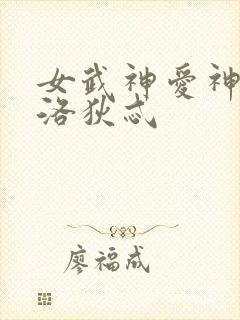 女武神愛神
洛狄忒
廖福成